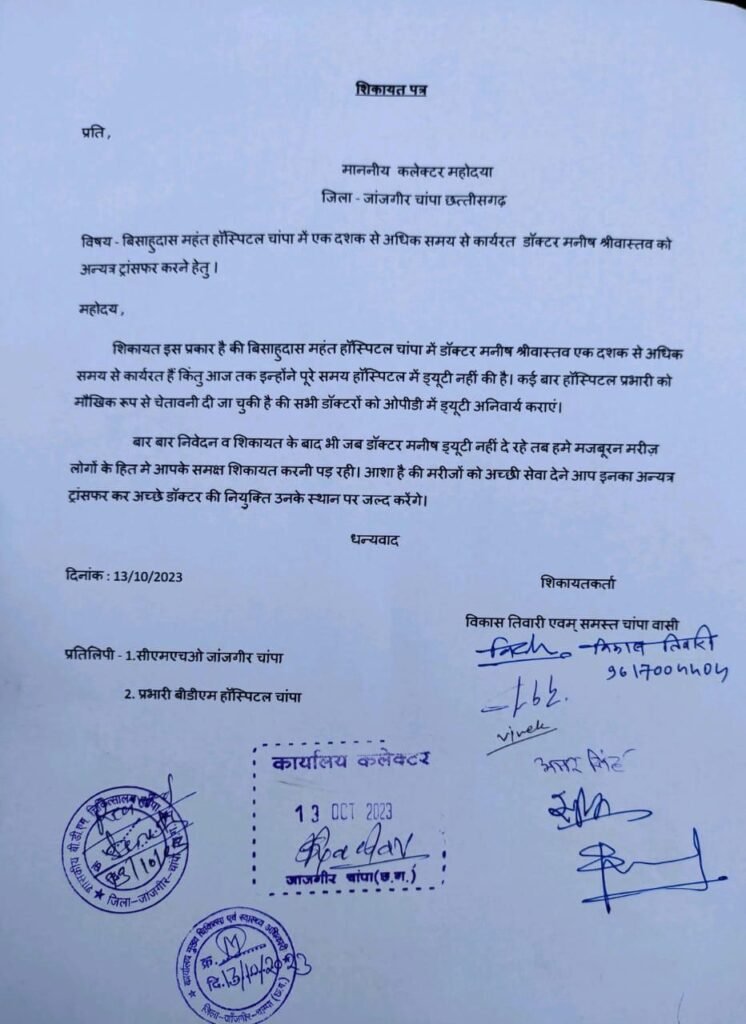 शिकायत पत्र
प्रति ,
माननीय कलेक्टर महोदया
जिला - जांजगीर चांपा छत्तीसगढ़
विषय - बिसाहुदास महंत हॉस्पिटल चांपा में एक दशक से अधिक समय से कार्यरत डॉक्टर मनीष श्रीवास्तव को
अन्यत्र ट्रांसफर करने हेतु ।
महोदय ,
शिकायत इस प्रकार है की बिसाहुदास महंत हॉस्पिटल चांपा में डॉक्टर मनीष श्रीवास्तव एक दशक से अधिक
समय से कार्यरत हैं किंतु आज तक इन्होंने पूरे समय हॉस्पिटल में ड्यूटी नहीं की है। कई बार हॉस्पिटल प्रभारी को
मौखिक रूप से चेतावनी दी जा चुकी है की सभी डॉक्टरों को ओपीडी में ड्यूटी अनिवार्य कराएं।
बार बार निवेदन व शिकायत के बाद भी जब डॉक्टर मनीष ड्यूटी नहीं दे रहे तब हमे मजबूरन मरीज़
लोगों के हित मे आपके समक्ष शिकायत करनी पड़ रही। आशा है की मरीजों को अच्छी सेवा देने आप इनका अन्यत्र
ट्रांसफर कर अच्छे डॉक्टर की नियुक्ति उनके स्थान पर जल्द करेंगे।
धन्यवाद
दिनांक : 13/10/2023
शिकायतकर्ता
विकास तिवारी एवम् समस्त चांपा वासी
विकास तिवारी
प्रतिलिपी - 1.सीएमएचओ जांजगीर चांपा
2. प्रभारी बीडीएम हॉस्पिटल चांपा
vivek
कार्यालय कलेक्टर
13 OCT 2023
जांजगीर चांपा(छ.ग.)
शासकीय बी.डी.एम. चिकित्सालय चांपा
जिला-जांजगीर-चांपा
कार्यालय मुख्य चिकित्सा एवं स्वास्थ्य अधिकारी
क्र.
दि.13/10/2023
जिला-जाँजगीर-चाम्पा (छ.ग.)